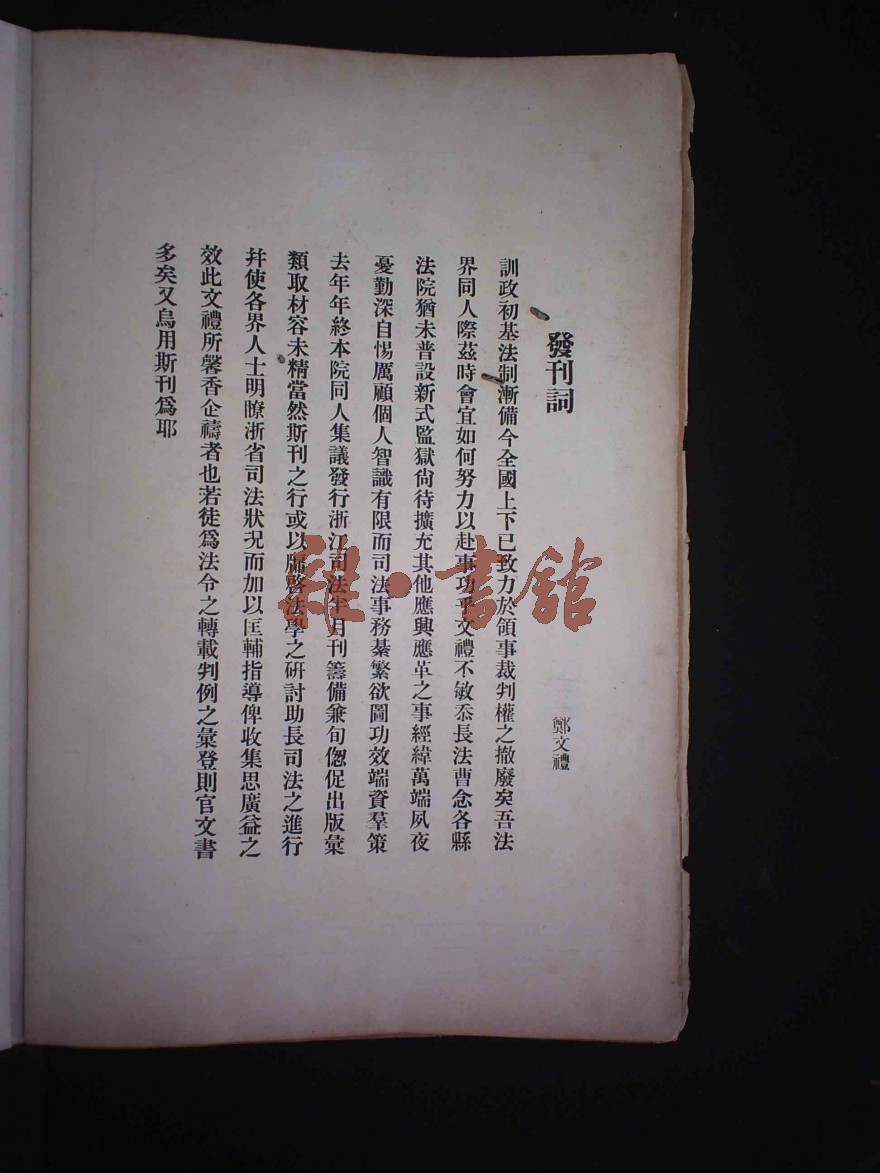 發刊詞
鄭文禮
訓政初基法制漸備今全國上下已致力於領事裁判權之撤廢矣吾法
界同人際茲時會宜如何努力以赴事功乎文禮不敏忝長法曹念各縣
法院猶未普設新式監獄尙待擴充其他應興應革之事經緯萬端夙夜
憂勤深自惕厲顧個人智識有限而司法事務綦繁欲圖功效端資羣策
去年年終本院同人集議發行浙江司法半月刊籌備兼旬偬促出版彙
類取材容未精當然斯刊之行或以牖啓法學之硏討助長司法之進行
幷使各界人士明瞭浙省司法狀況而加以匡輔指導俾收集思廣益之
效此文禮所馨香企禱者也若徒爲法令之轉載判例之彙登則官文書
多矣又烏用斯刊爲耶
雜·書館